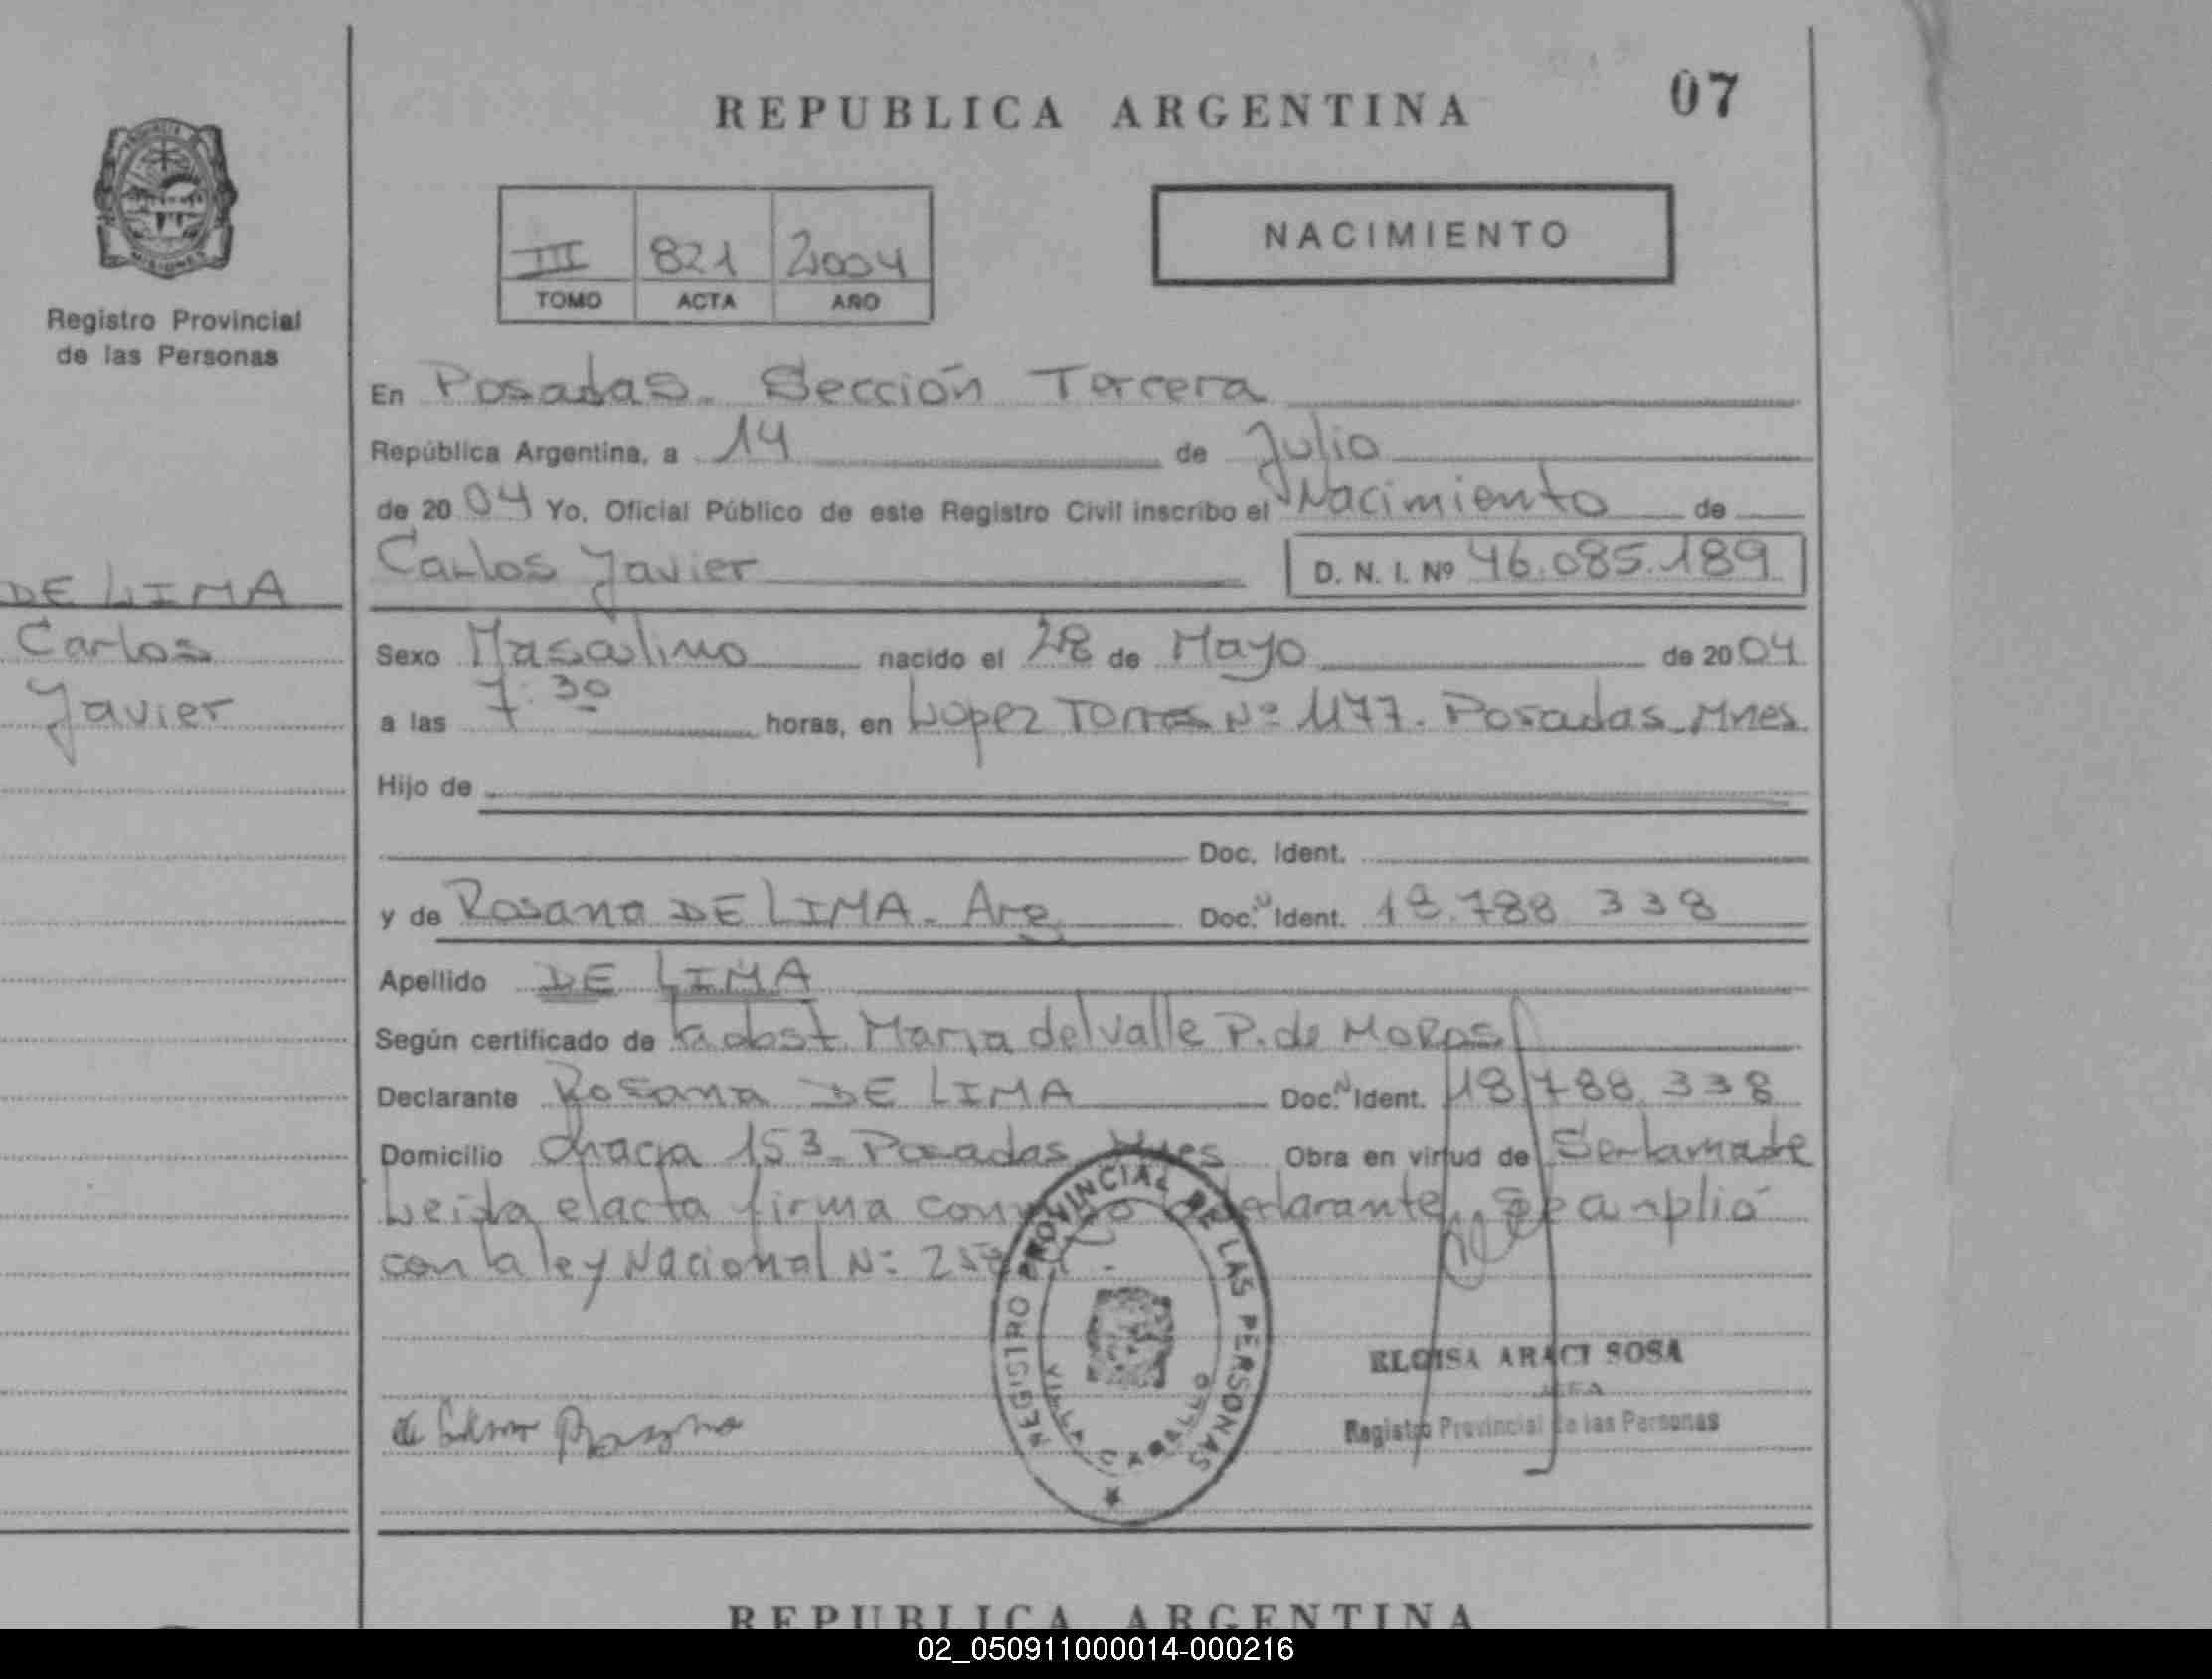 07
REPUBLICA ARGENTINA
III 821 2004
TOMO ACTA AÑO
NACIMIENTO
MISIONES
Registro Provincial
de las Personas
En Posadas. Sección Tercera
República Argentina, a 14 de Julio
de 2004 Yo, Oficial Público de este Registro Civil inscribo el Nacimiento de
Carlos Javier D. N. I. Nº 46.085.189
DE LIMA
Carlos
Javier
Sexo Masculino nacido el 28 de Mayo de 2004
a las 7:30 horas, en Lopez Torres Nº 1177. Posadas Mnes.
Hijo de
Doc. Ident.
y de Rosana DE LIMA. Arg Doc. Ident. 18.788 338
Apellido DE LIMA
Según certificado de la obst. Maria del Valle P. de
Declarante Rosana DE LIMA Doc. Ident. 18.788.338
Domicilio chacra 153 Posadas Mnes Obra en virtud de Ser la madre
Leida el acta firma declarante se
con la ley Nacional Nº
REGISTRO PROVINCIAL DE LAS PERSONAS
VILLA CABELLO
ELOISA ARACI SOSA
JEFA
Registro Provincial de las Personas
REPUBLICA ARGENTINA
02_050911000014-000216